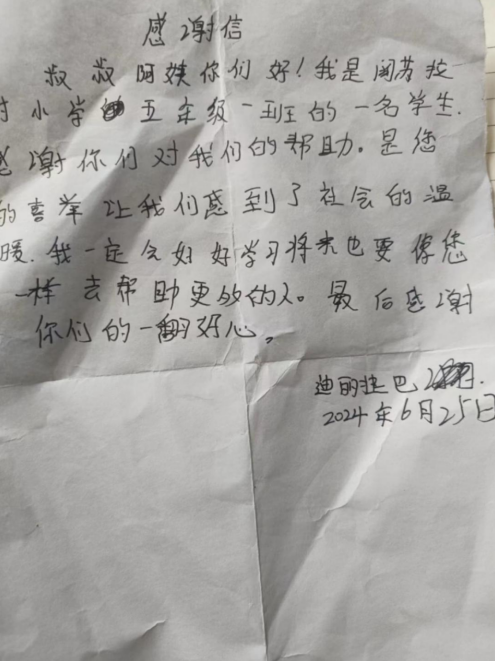 感谢信
叔叔阿姨你们好！我是阔苏拉
村小学五年级一班的一名学生.
感谢你们对我们的帮助。是您
的喜举让我们感到了社会的温
暖.我一定会好好学习将来也要像您
一样去帮助更多的人。最后感谢
你们的一翻好心。
迪丽拉巴
2024年6月25日